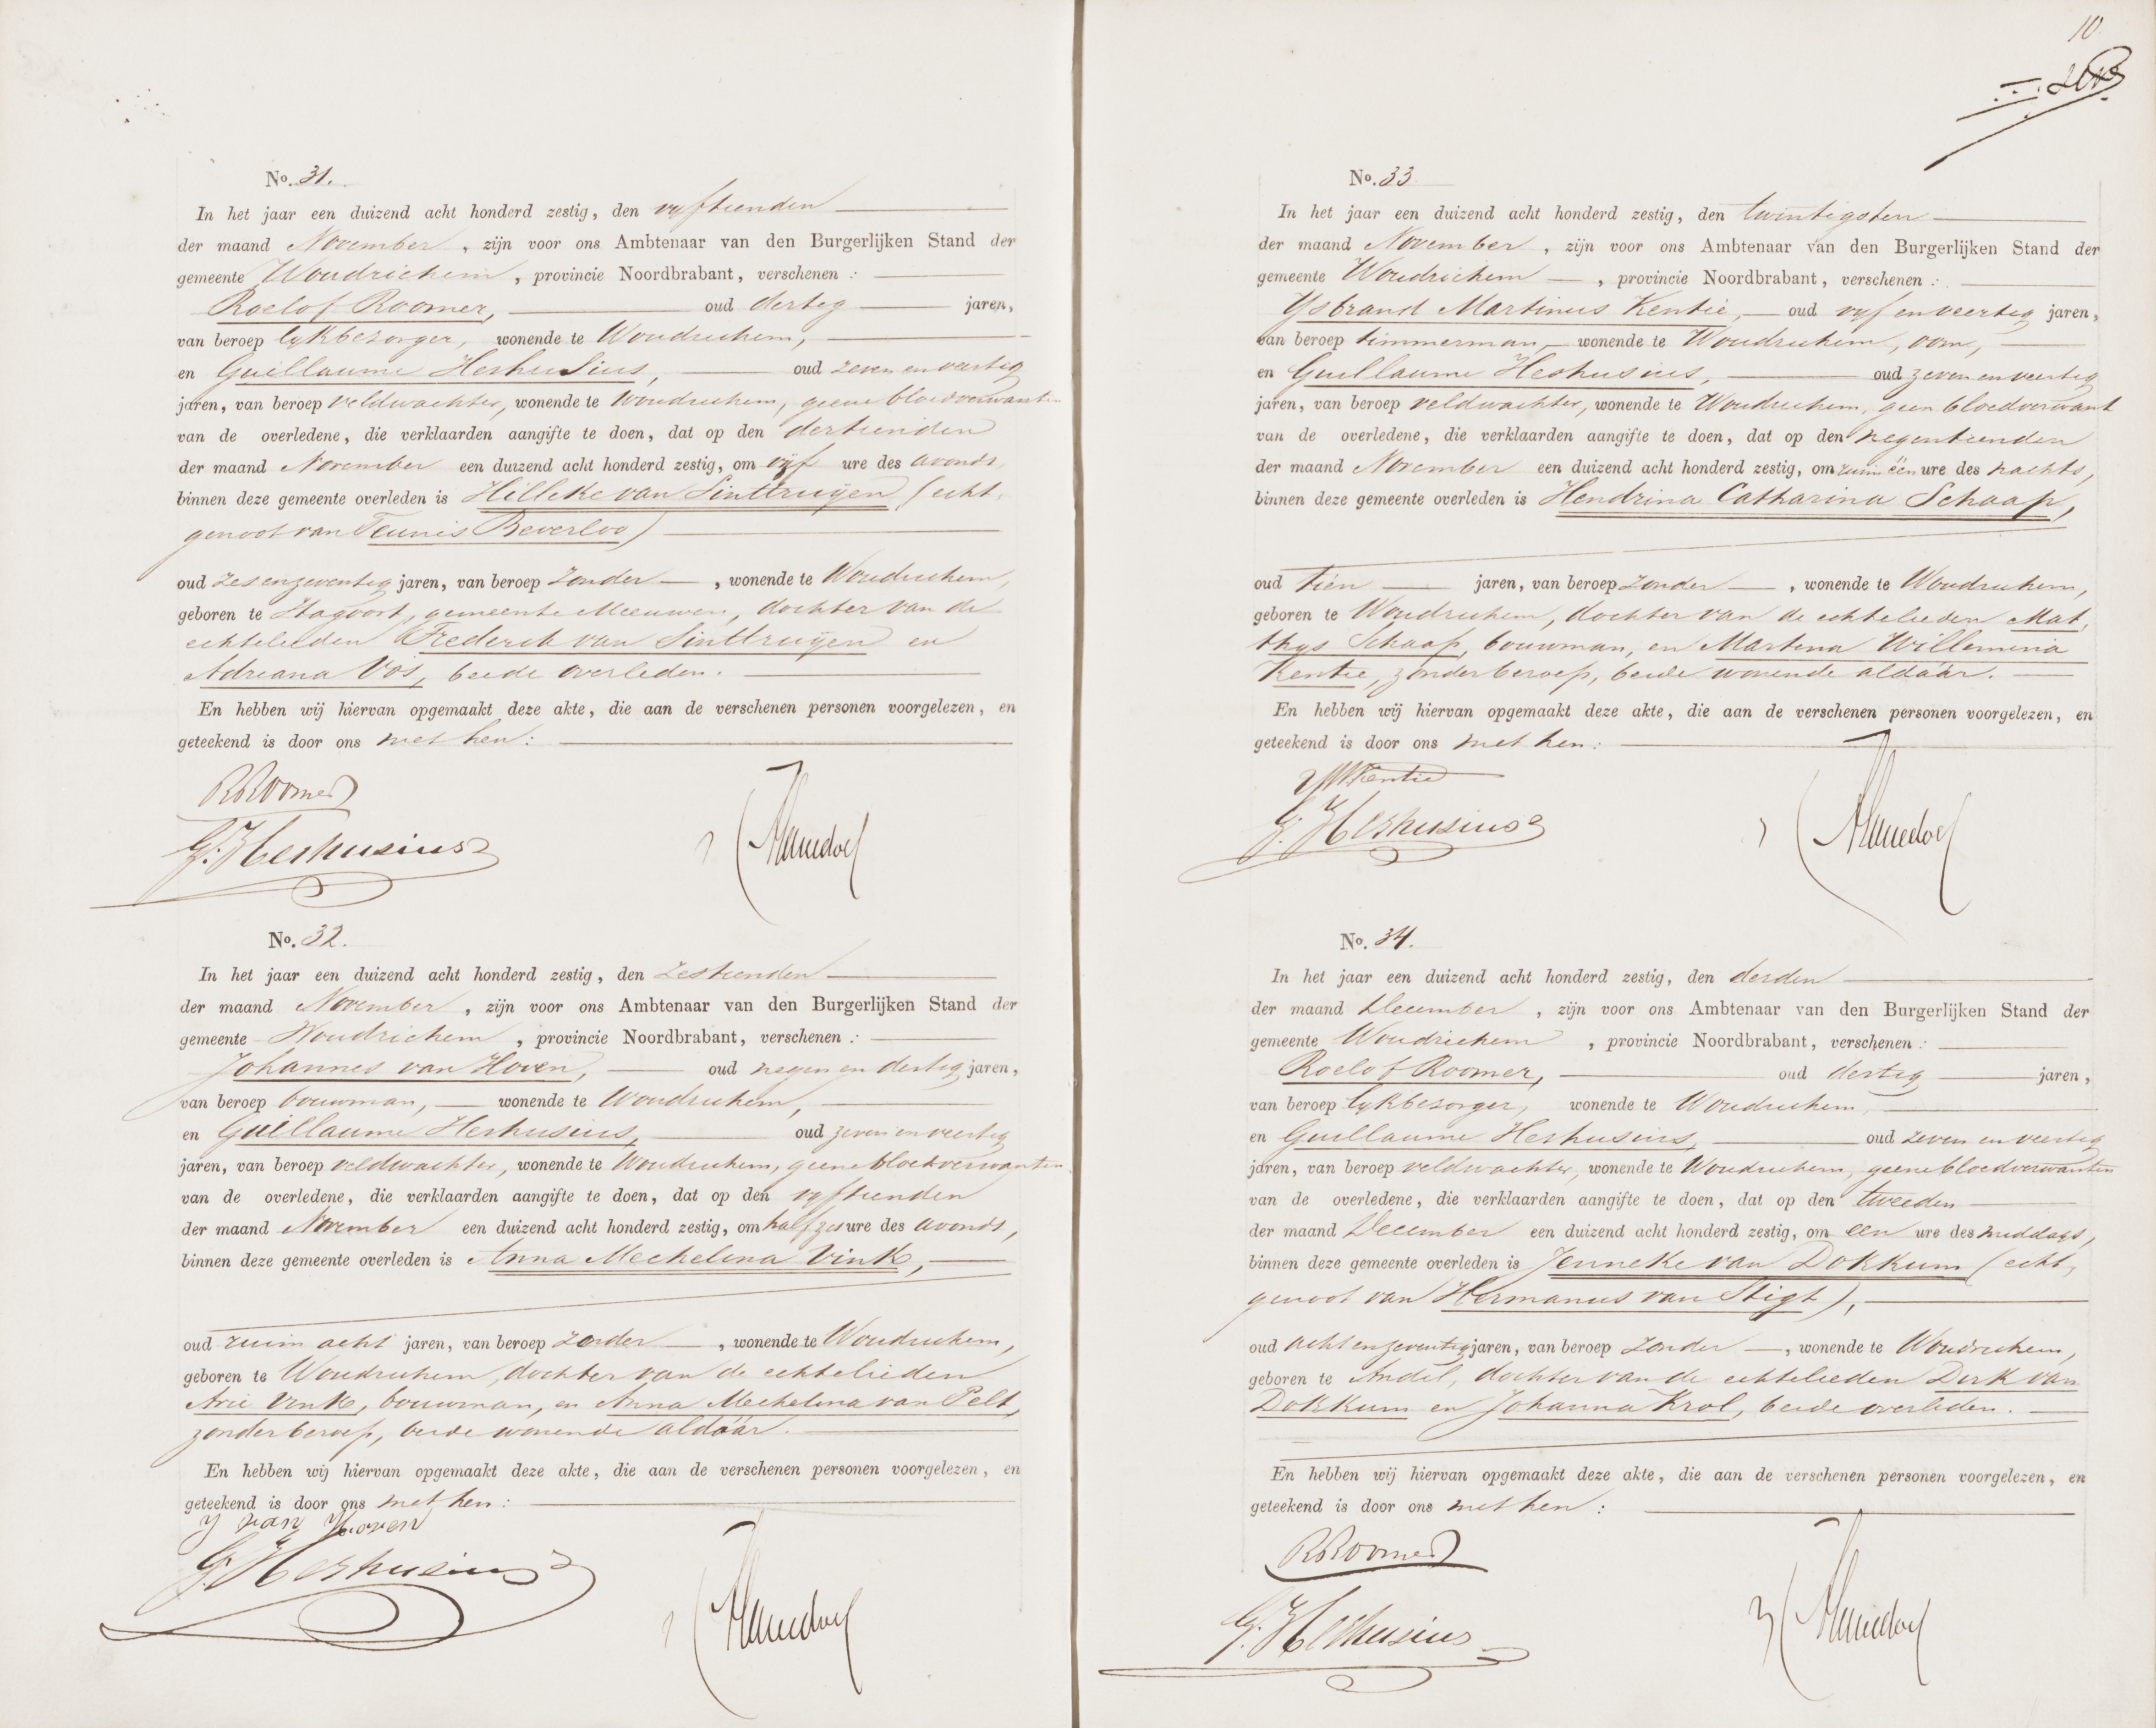 No. 31.
In het jaar een duizend acht honderd zestig, den vyftienden
der maand November, zijn voor ons Ambtenaar van den Burgerlijken Stand der
gemeente Woudrichem, provincie Noordbrabant, verschenen:
Roelof Roomer, oud dertig jaren,
van beroep lykbezorger, wonende te Woudrichem,
en Guillaume Heshusius, oud zeven en veertig
jaren, van beroep veldwachter, wonende te Woudrichem, geene bloedverwanten
van de overledene, die verklaarden aangifte te doen, dat op den dertienden
der maand November een duizend acht honderd zestig, om vyf ure des avonds,
binnen deze gemeente overleden is Hilleke van Linttruijen (echt,
genoot van Teunis Beverloo)
oud zes en zeventig jaren, van beroep zonder, wonende te Woudrichem,
geboren te Hagoort, gemeente Meeuwen, dochter van de
echtelieden Frederik van Linttruijen en
Adriana Vos, beide overleden.
En hebben wij hiervan opgemaakt deze akte, die aan de verschenen personen voorgelezen, en
geteekend is door ons met hen:
R Roomer
G. Heshusius
No. 32.
In het jaar een duizend acht honderd zestig, den zestienden
der maand November, zijn voor ons Ambtenaar van den Burgerlijken Stand der
gemeente Woudrichem, provincie Noordbrabant, verschenen:
Johannes van Hoven, oud negen en dertig jaren,
van beroep bouwman, wonende te Woudrichem,
en Guillaume Heshusius, oud zeven en veertig
jaren, van beroep veldwachter, wonende te Woudrichem, geene bloedverwanten
van de overledene, die verklaarden aangifte te doen, dat op den vyftienden
der maand November een duizend acht honderd zestig, om half zes ure des avonds,
binnen deze gemeente overleden is Anna Mechelina Vink,
oud ruim acht jaren, van beroep zonder, wonende te Woudrichem,
geboren te Woudrichem, dochter van de echtelieden
Arie Vink, bouwman, en Anna Mechelina van Pelt,
zonder beroep, beide wonende aldáár.
En hebben wij hiervan opgemaakt deze akte, die aan de verschenen personen voorgelezen, en
geteekend is door ons met hen:
J van Hoven
G. Heshusius
10
No. 33
In het jaar een duizend acht honderd zestig, den twintigsten
der maand November, zijn voor ons Ambtenaar van den Burgerlijken Stand der
gemeente Woudrichem, provincie Noordbrabant, verschenen:
Ysbrand Martinus Kentie, oud vyf en veertig jaren,
van beroep timmerman, wonende te Woudrichem, oom,
en Guillaume Heshusius, oud zeven en veertig
jaren, van beroep veldwachter, wonende te Woudrichem, geen bloedverwant
van de overledene, die verklaarden aangifte te doen, dat op den negentienden
der maand November een duizend acht honderd zestig, om ruim één ure des nachts,
binnen deze gemeente overleden is Hendrina Catharina Schaap,
oud tien jaren, van beroep zonder, wonende te Woudrichem,
geboren te Woudrichem, dochter van de echtelieden Mat,
thys Schaap, bouwman, en Martina Willemina
Kentie, zonder beroep, beide wonende aldáár.
En hebben wij hiervan opgemaakt deze akte, die aan de verschenen personen voorgelezen, en
geteekend is door ons met hen:
YM Kentie
G. Heshusius
No. 34.
In het jaar een duizend acht honderd zestig, den derden
der maand December, zijn voor ons Ambtenaar van den Burgerlijken Stand der
gemeente Woudrichem, provincie Noordbrabant, verschenen:
Roelof Roomer, oud dertig jaren,
van beroep lykbezorger, wonende te Woudrichem,
en Guillaume Heshusius, oud zeven en veertig
jaren, van beroep veldwachter, wonende te Woudrichem, geene bloedverwanten
van de overledene, die verklaarden aangifte te doen, dat op den tweeden
der maand December een duizend acht honderd zestig, om een ure des middags,
binnen deze gemeente overleden is Jenneke van Dokkum (echt,
genoot van Hermanus van Stigt),
oud acht en zeventig jaren, van beroep zonder, wonende te Woudrichem,
geboren te Andel, dochter van de echtelieden Dirk van
Dokkum en Johanna Krol, beide overleden.
En hebben wij hiervan opgemaakt deze akte, die aan de verschenen personen voorgelezen, en
geteekend is door ons met hen:
R Roomer
G. Heshusius